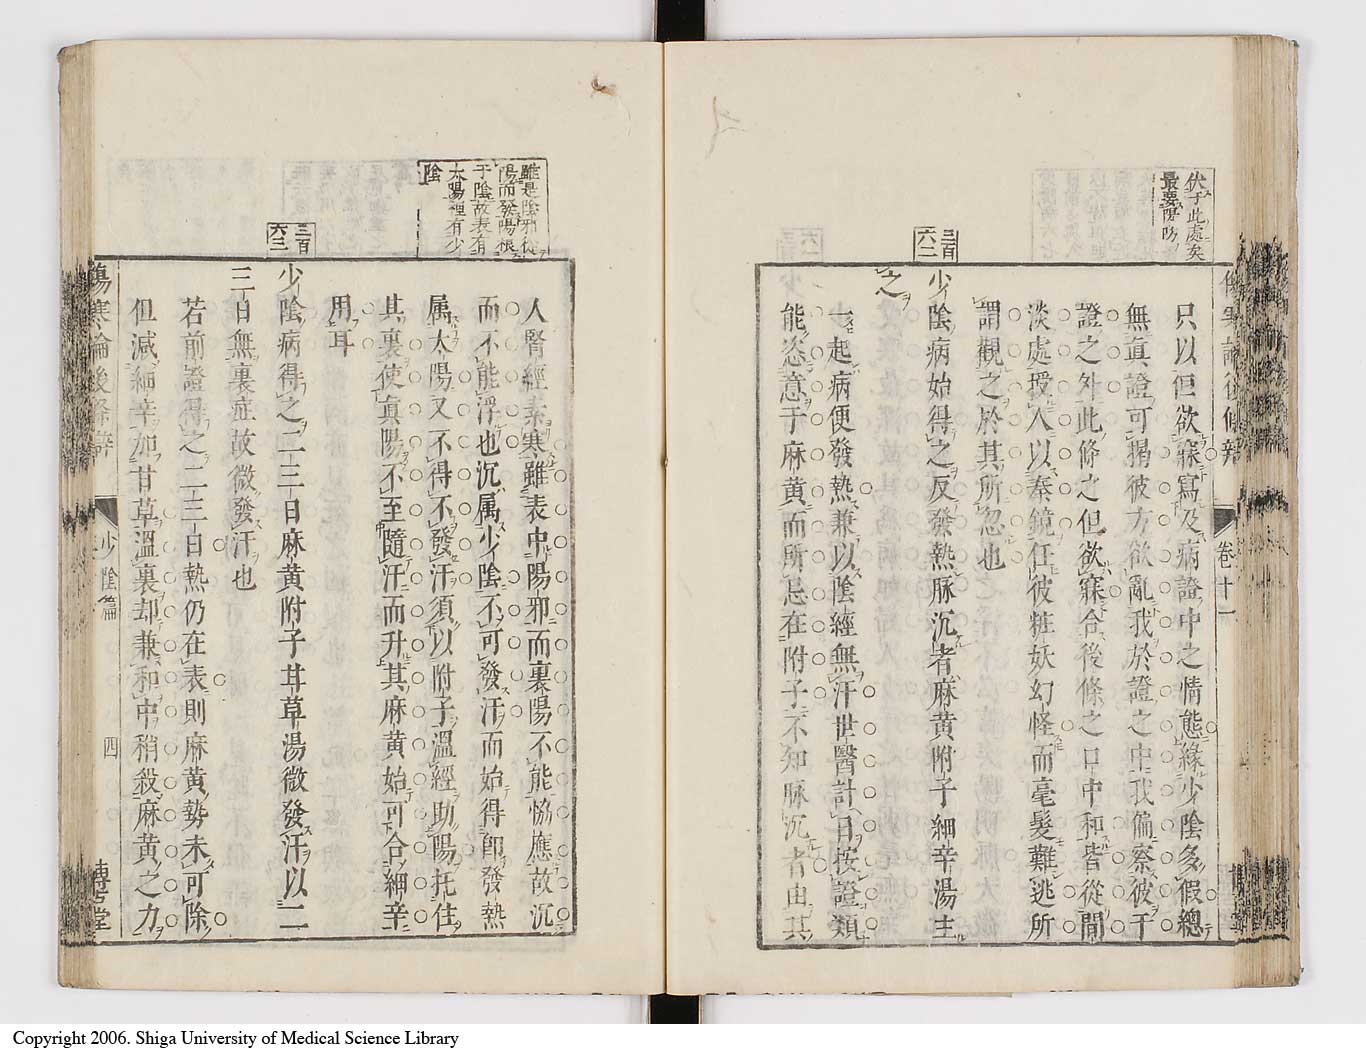 伏于此處矣
最要隄防
只以但欲寐寫及病證中之情態緣少陰多假總
無眞證可揭彼方欲亂我於證之中我偏察彼于
證之外此條之但欲寐合後條之口中和皆從閒
淡處授人以秦鏡任彼粧妖幻怪而毫髮難逃所
謂觀之於其所忽也
三百
六二
少陰病始得之反發熱脉沉者麻黄附子細辛湯主
之
一起病便發熱兼以陰經無汗世醫計日按證類
能恣意于麻黄而所忌在附子不知脉沉者由其
卷十一
雖是陰邪從
陽而發陽根
于陰故表有
太陽裡有少
陰
人腎經素寒雖表中陽邪而裏陽不能恊應故沉
而不能浮也沉属少陰不可發汗而始得即發熱
属太陽又不得不發汗須以附子溫經助陽托住
其裏使眞陽不至隨汗而升其麻黄始可合細辛
用耳
三百
六三
少陰病得之二三日麻黄附子甘草湯微發汗以二
三日無裏症故微發汗也
若前證得之二三日熱仍在表則麻黄勢未可除
但減細辛加甘草溫裏却兼和中稍殺麻黄之力
傷寒論後條辨
少陰篇
四
博古堂
Copyright 2006. Shiga University of Medical Science Library